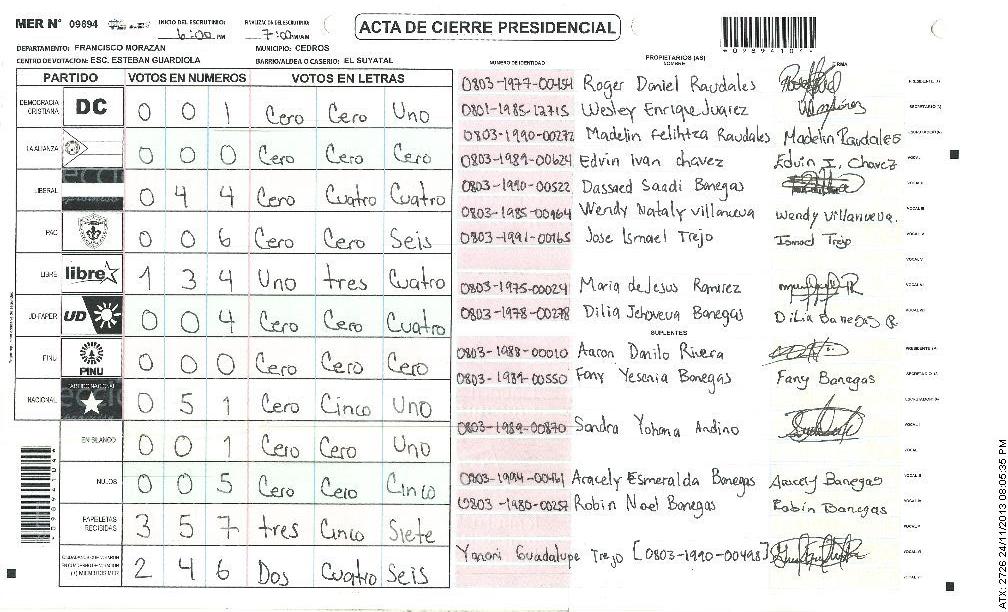 MER Nº 09894
INICIO DEL ESCRUTINIO: 6:00 PM
FINALIZACION DEL ESCRUTINIO: 7:00 PM/AM
ACTA DE CIERRE PRESIDENCIAL
DEPARTAMENTO: FRANCISCO MORAZAN
MUNICIPIO: CEDROS
CENTRO DE VOTACION: ESC. ESTEBAN GUARDIOLA
BARRIO/ALDEA O CASERIO: EL SUYATAL
PARTIDO VOTOS EN NUMEROS VOTOS EN LETRAS
DEMOCRACIA CRISTIANA DC 0 0 1 Cero Cero Uno
LA ALIANZA 0 0 0 Cero Cero Cero
LIBERAL 0 4 4 Cero Cuatro Cuatro
PAC 0 0 6 Cero Cero Seis
LIBRE libre 1 3 4 Uno tres Cuatro
UD-FAPER UD 0 0 4 Cero Cero Cuatro
PINU PINU 0 0 0 Cero Cero Cero
NACIONAL 0 5 1 Cero Cinco Uno
EN BLANCO 0 0 1 Cero Cero Uno
NULOS 0 0 5 Cero Cero Cinco
PAPELETAS RECIBIDAS 3 5 7 tres Cinco Siete
2 4 6 Dos Cuatro Seis
NUMERO DE IDENTIDAD PROPIETARIOS (AS) NOMBRE FIRMA
0803-1977-00454 Roger Daniel Raudales
0801-1985-12715 Wesley Enrique Juarez
0803-1990-00272 Madelin Felihtza Raudales Madelin Raudales
0803-1989-00624 Edvin Ivan Chavez Edvin I. Chavez
0803-1990-00522 Dassaed Saadi Banegas
0803-1985-00464 Wendy Nataly Villanueva Wendy Villanueva.
0803-1991-00165 Jose Ismael Trejo Ismael Trejo
0803-1975-00024 Maria de Jesus Ramirez
0803-1978-00278 Dilia Jehoveva Banegas Dilia Banegas R
SUPLENTES
0803-1988-00010 Aaron Danilo Rivera
0803-1989-00550 Fany Yesenia Banegas Fany Banegas
0803-1989-00870 Sandra Yohana Andino
0803-1994-00461 Aracely Esmeralda Banegas Aracely Banegas
0803-1980-00257 Robin Noel Banegas Robin Banegas
Yanori Guadalupe Trejo [0803-1990-00498]
ATX: 2726 24/11/2013 08:05:35 PM